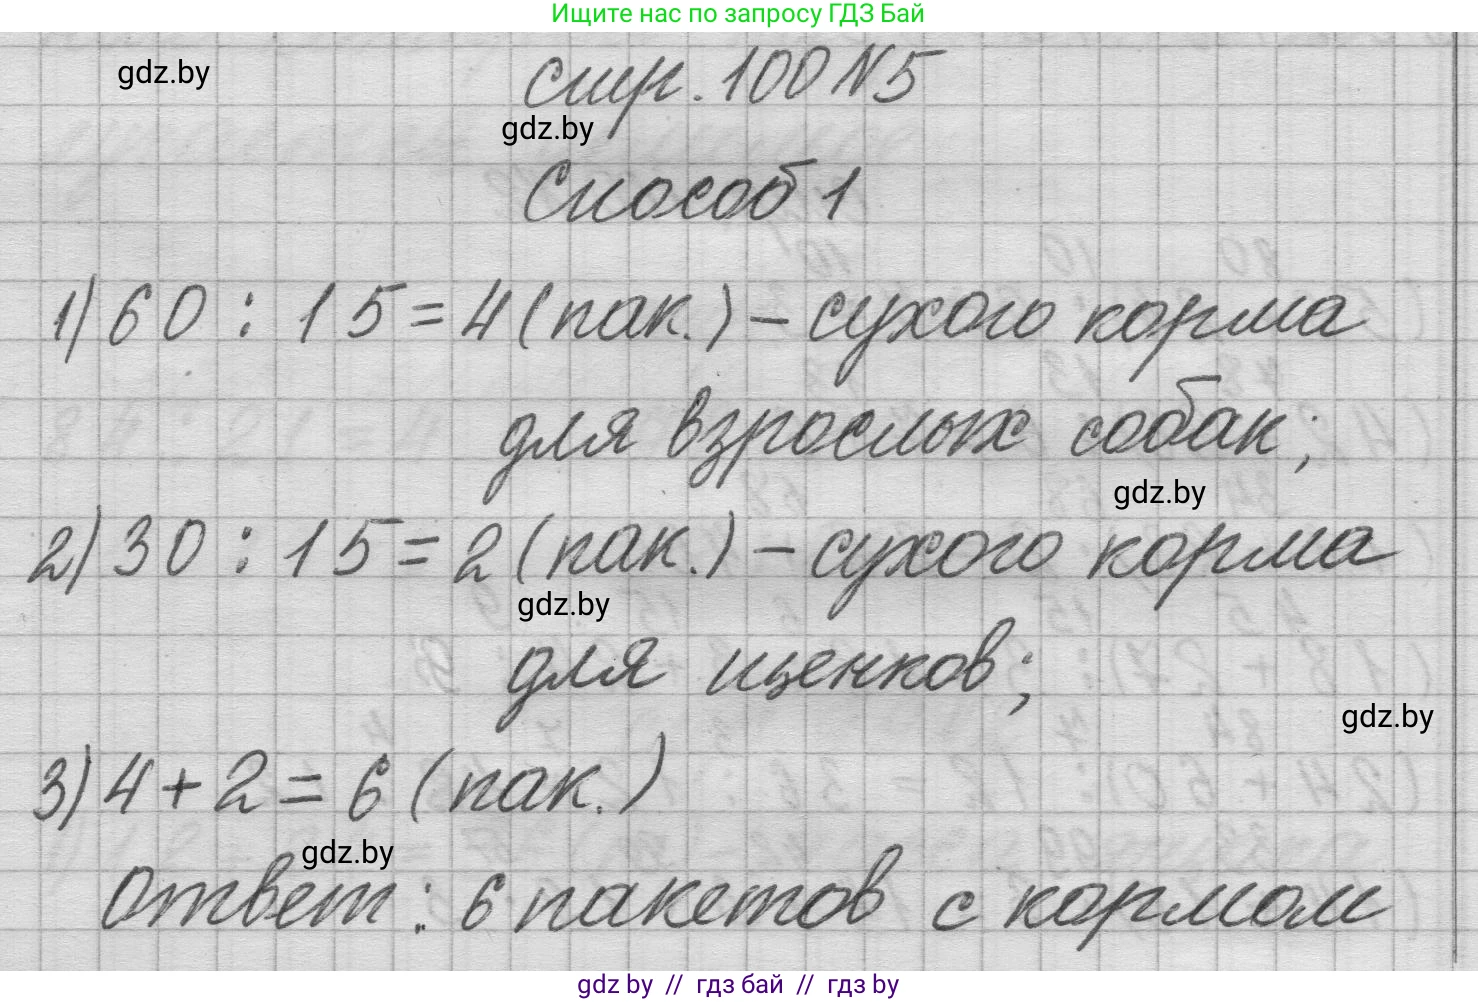 Ищите нас по запросу ГДЗ Бай
gdz.by
стр. 100 №5
gdz.by
Способ 1
1) 60 : 15 = 4 (пак.) – сухого корма
для взрослых собак;
gdz.by
2) 30 : 15 = 2 (пак.) – сухого корма
gdz.by
для щенков;
gdz.by
3) 4 + 2 = 6 (пак.)
gdz.by
Ответ: 6 пакетов с кормом
gdz by // гдз бай // гдз by